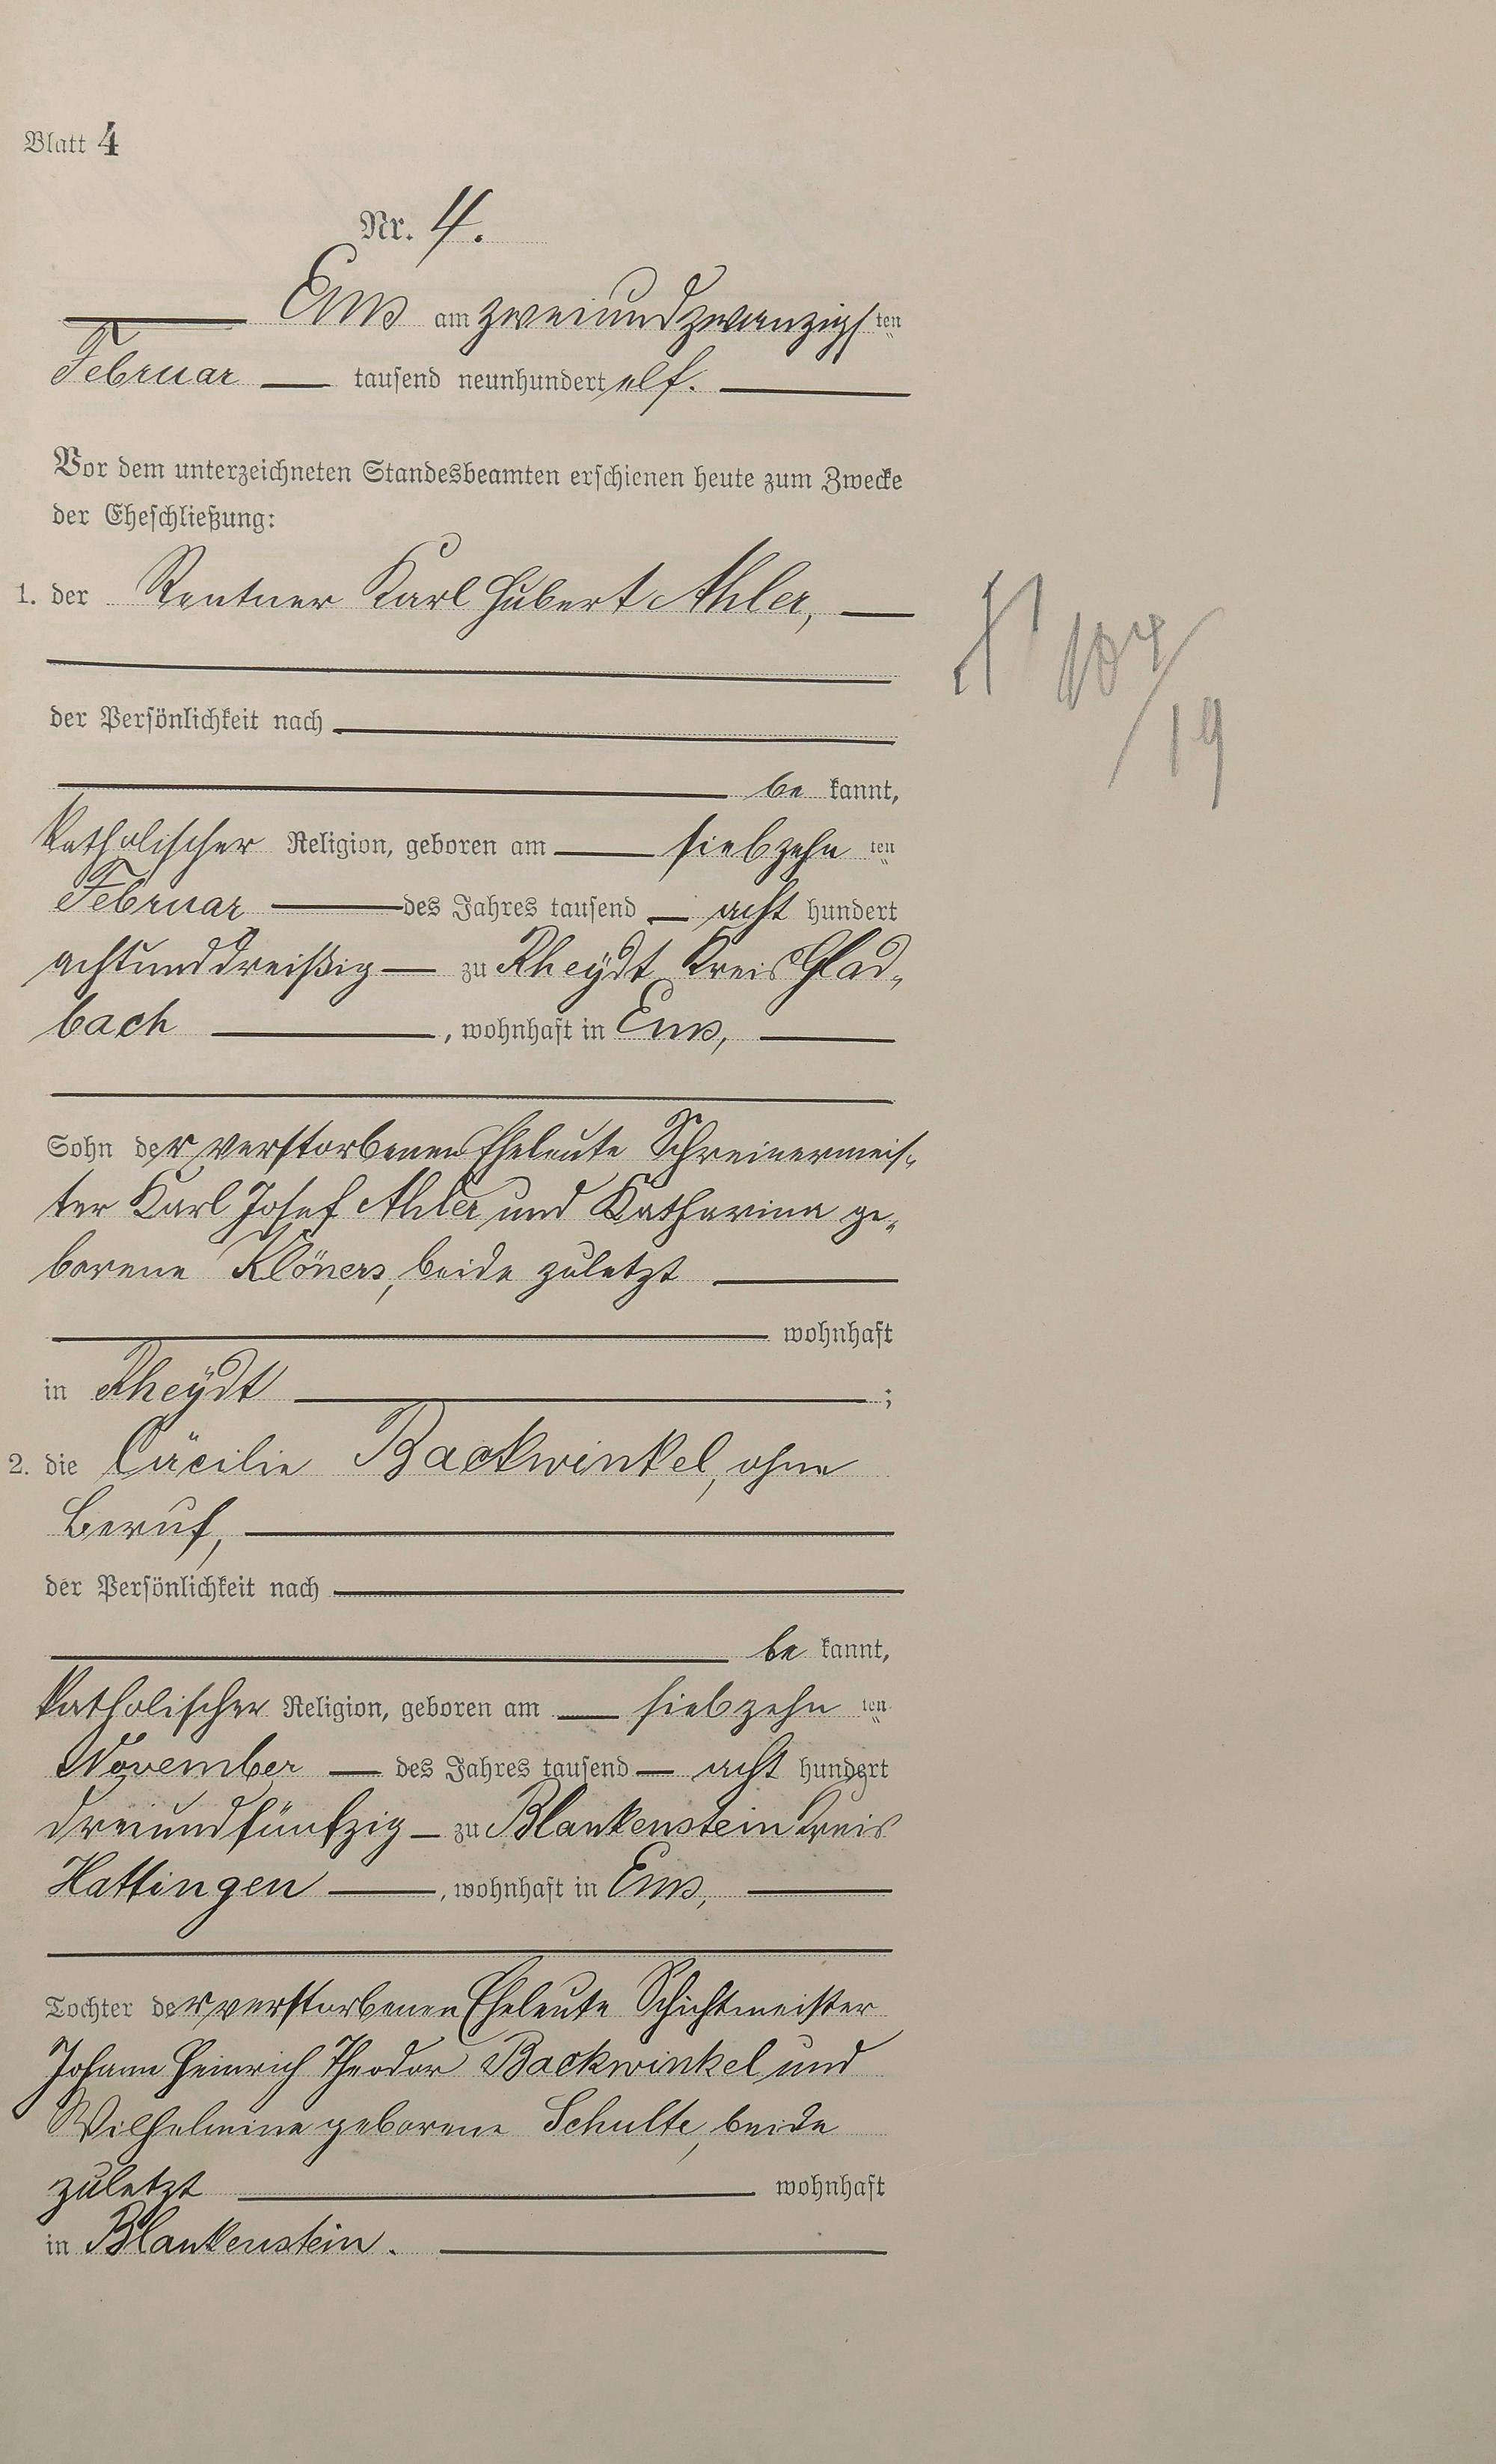 Blatt 4
Nr. 4.
Ems am zweiundzwanzigsten
Februar tausend neunhundert elf.
Vor dem unterzeichneten Standesbeamten erschienen heute zum Zwecke
der Eheschließung:
1. der Rentner Karl Hubert Ahler,
der Persönlichkeit nach
be kannt,
katholischer Religion, geboren am siebzehn ten
Februar des Jahres tausend acht hundert
achtunddreißig zu Rheydt Kreis Glad-
bach, wohnhaft in Ems,
Sohn der verstorbenen Eheleute Schreinermeis-
ter Karl Josef Ahler und Katharina ge-
borene Klöners, beide zuletzt
wohnhaft
in Rheydt ;
2. die Cäcilie Backwinkel, ohne
Beruf,
der Persönlichkeit nach
be kannt,
katholischer Religion, geboren am siebzehn ten
November des Jahres tausend acht hundert
dreiundfünfzig zu Blankenstein Kreis
Hattingen, wohnhaft in Ems,
Tochter der verstorbenen Eheleute Schichtmeister
Johann Heinrich Theodor Backwinkel und
Wilhelmine geborene Schulte, beide
zuletzt wohnhaft
in Blankenstein.
19